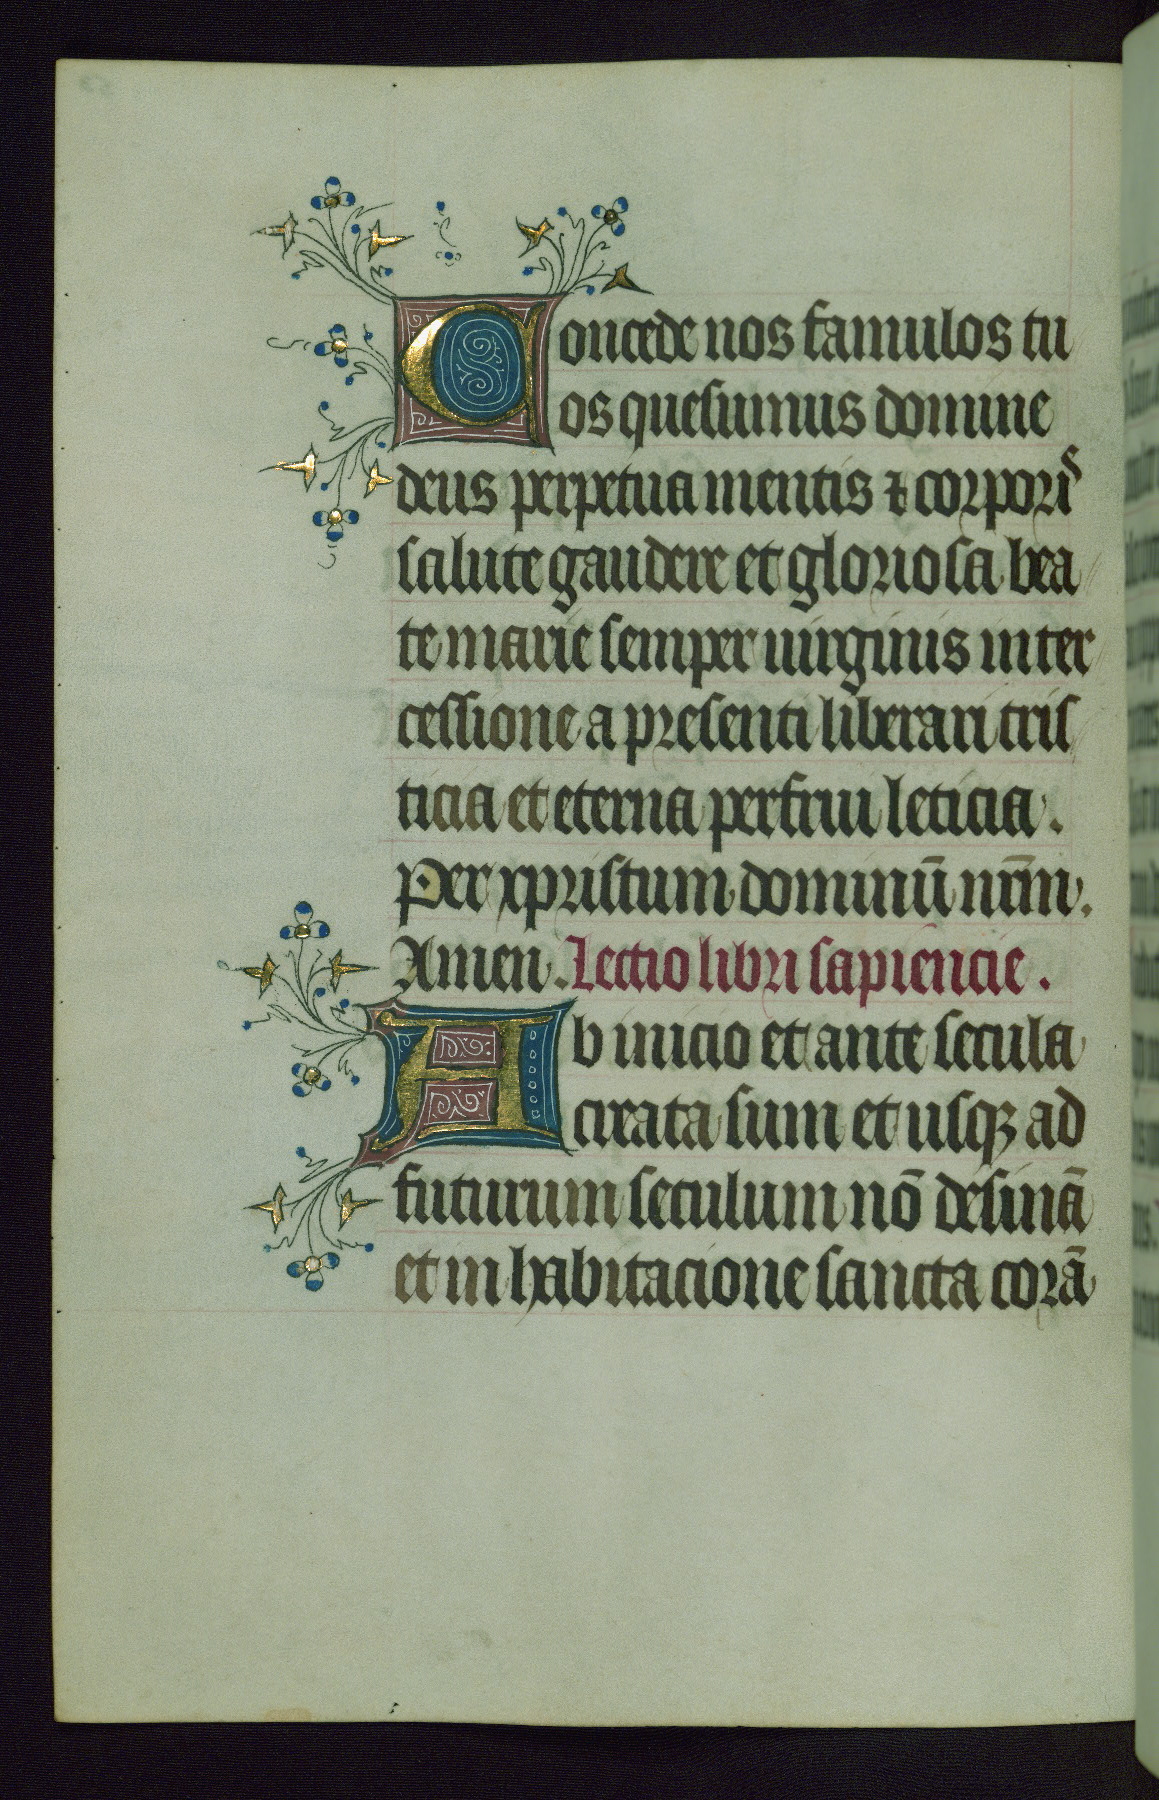 Concede nos famulos tu
os quesumus domine
deus perpetua mentis ⁊ corporis
salute gaudere et gloriosa bea
te marie semper uirginis inter
cessione a presenti liberari tris
ticia et eterna perfrui leticia.
Per xpristum dominū nr̄m.
Amen. Lectio libri sapiencie.
Ab inicio et ante secula
creata sum et usqꝫ ad
futurum seculum nō desinā
et in habitacione sancta corā